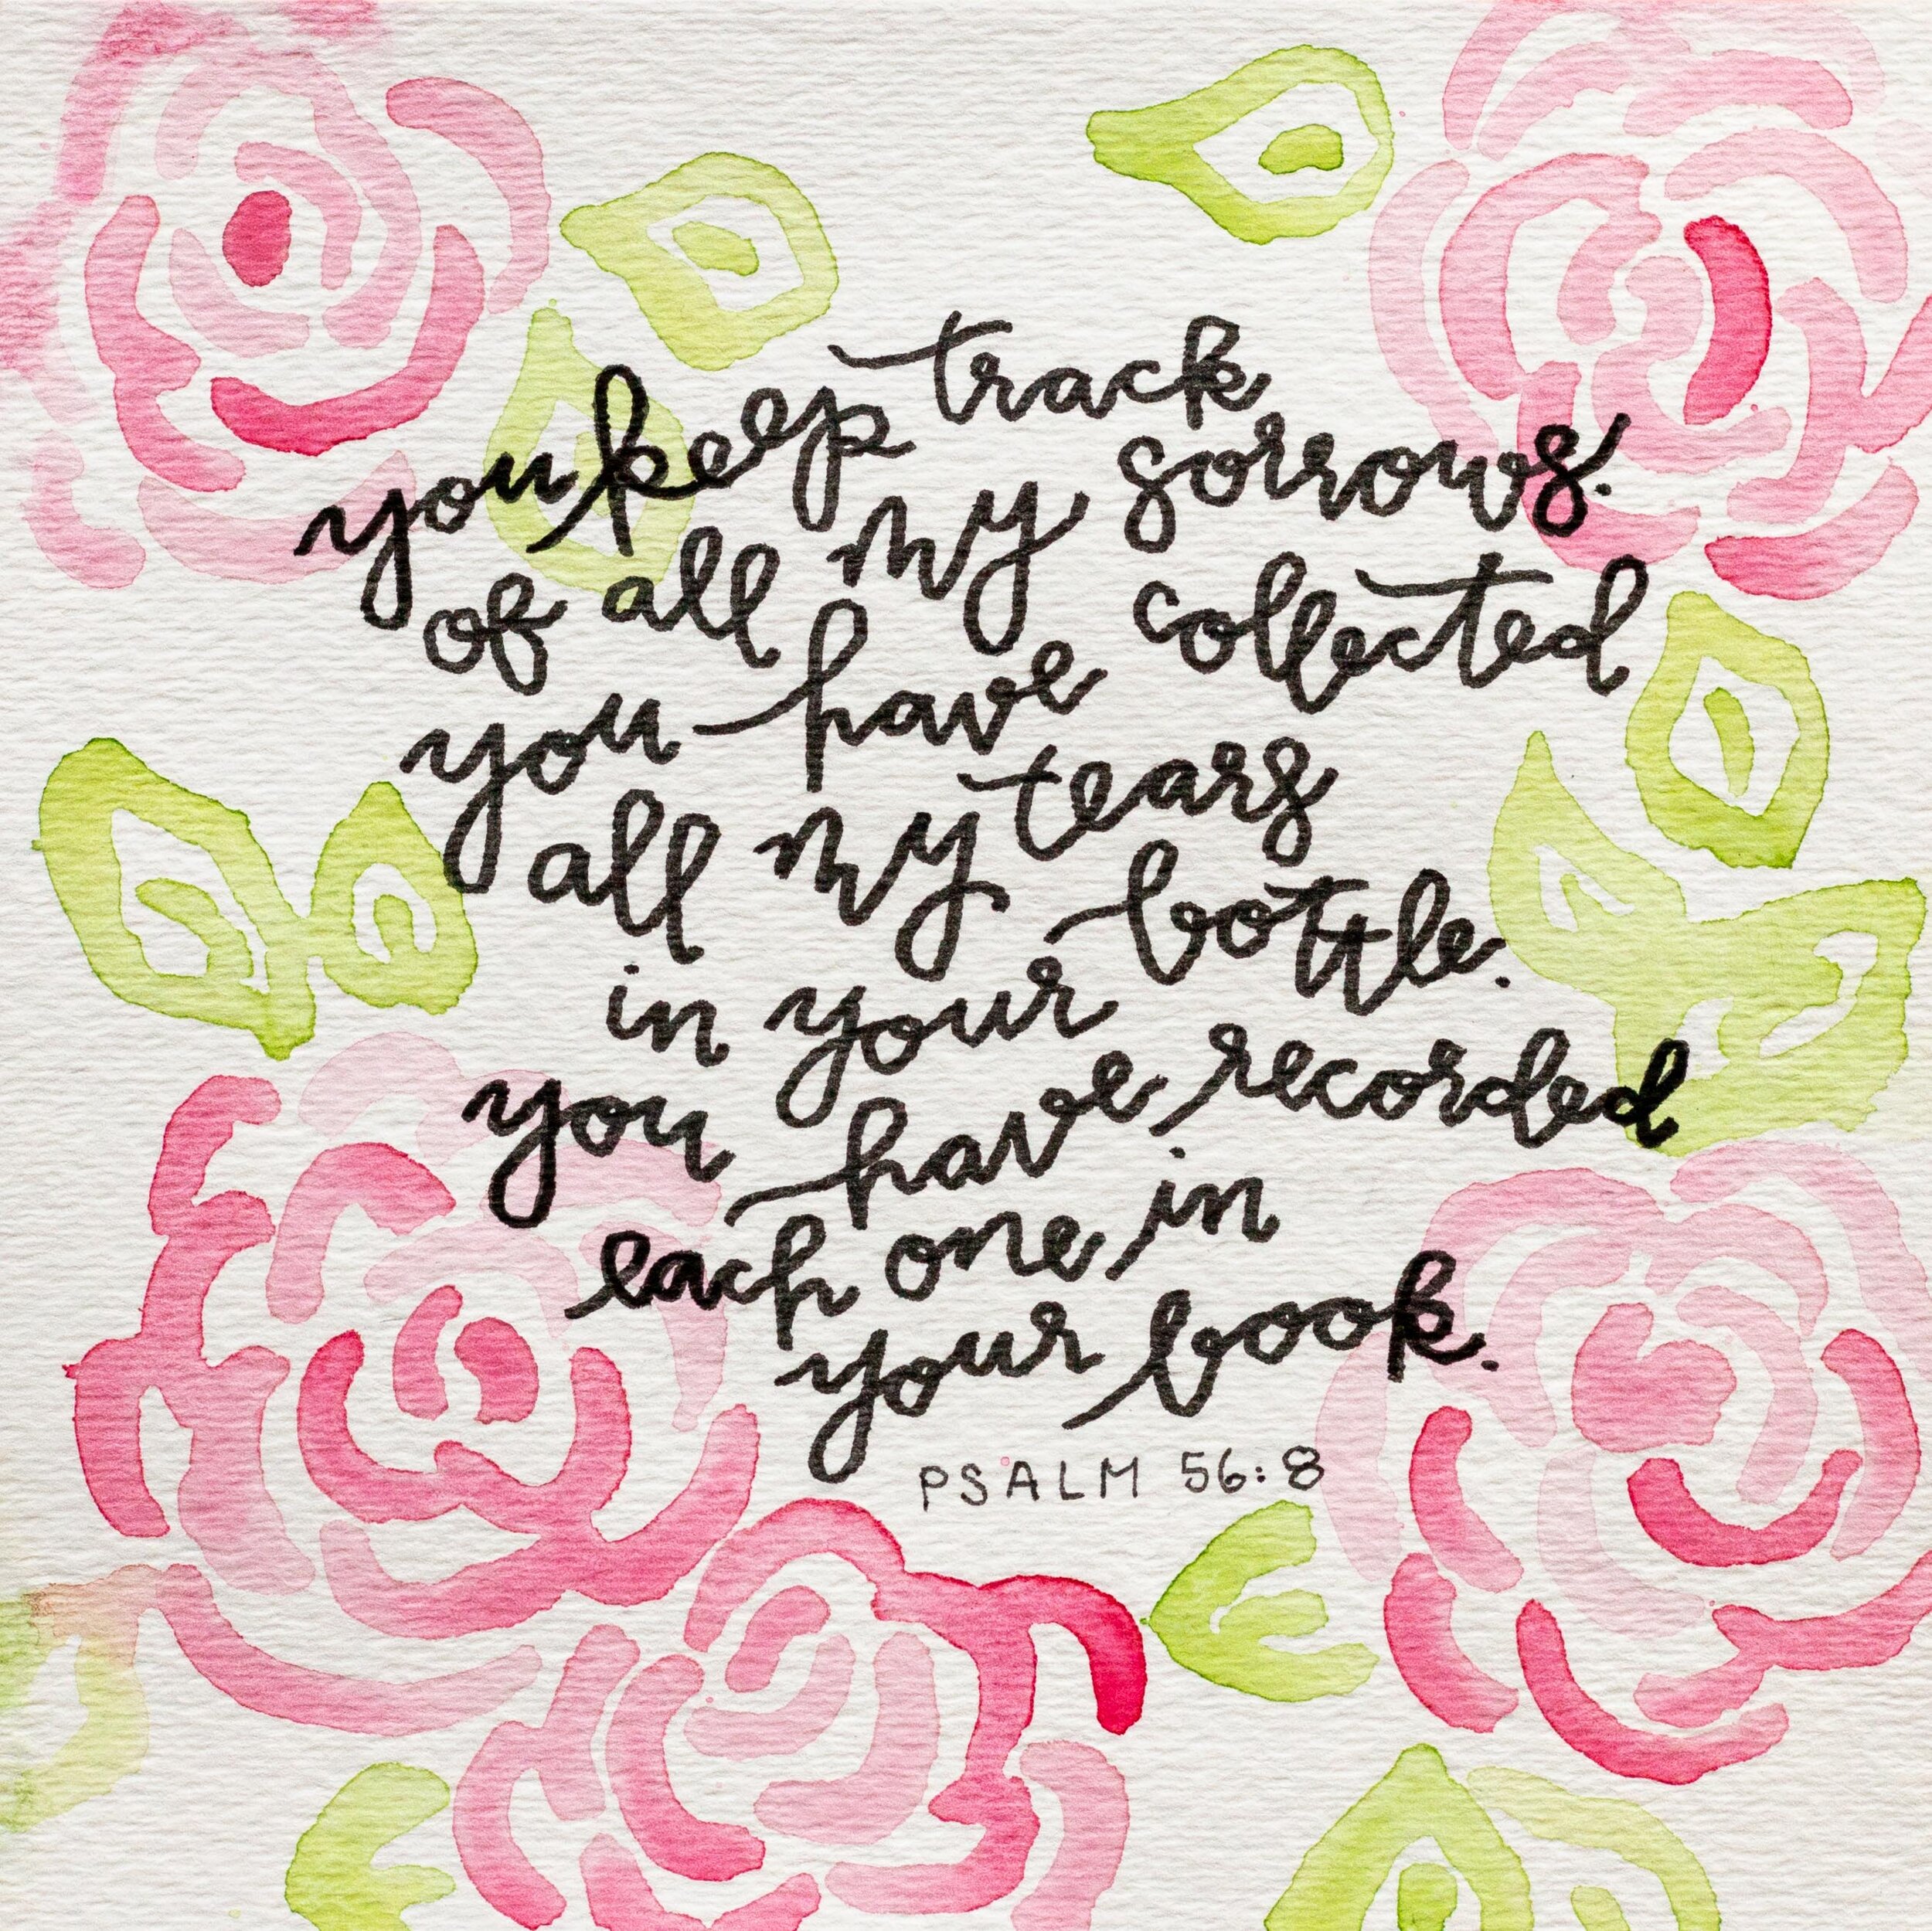 you keep track
of all my sorrows.
you have collected
all my tears
in your bottle.
you have recorded
each one in
your book.
PSALM 56:8